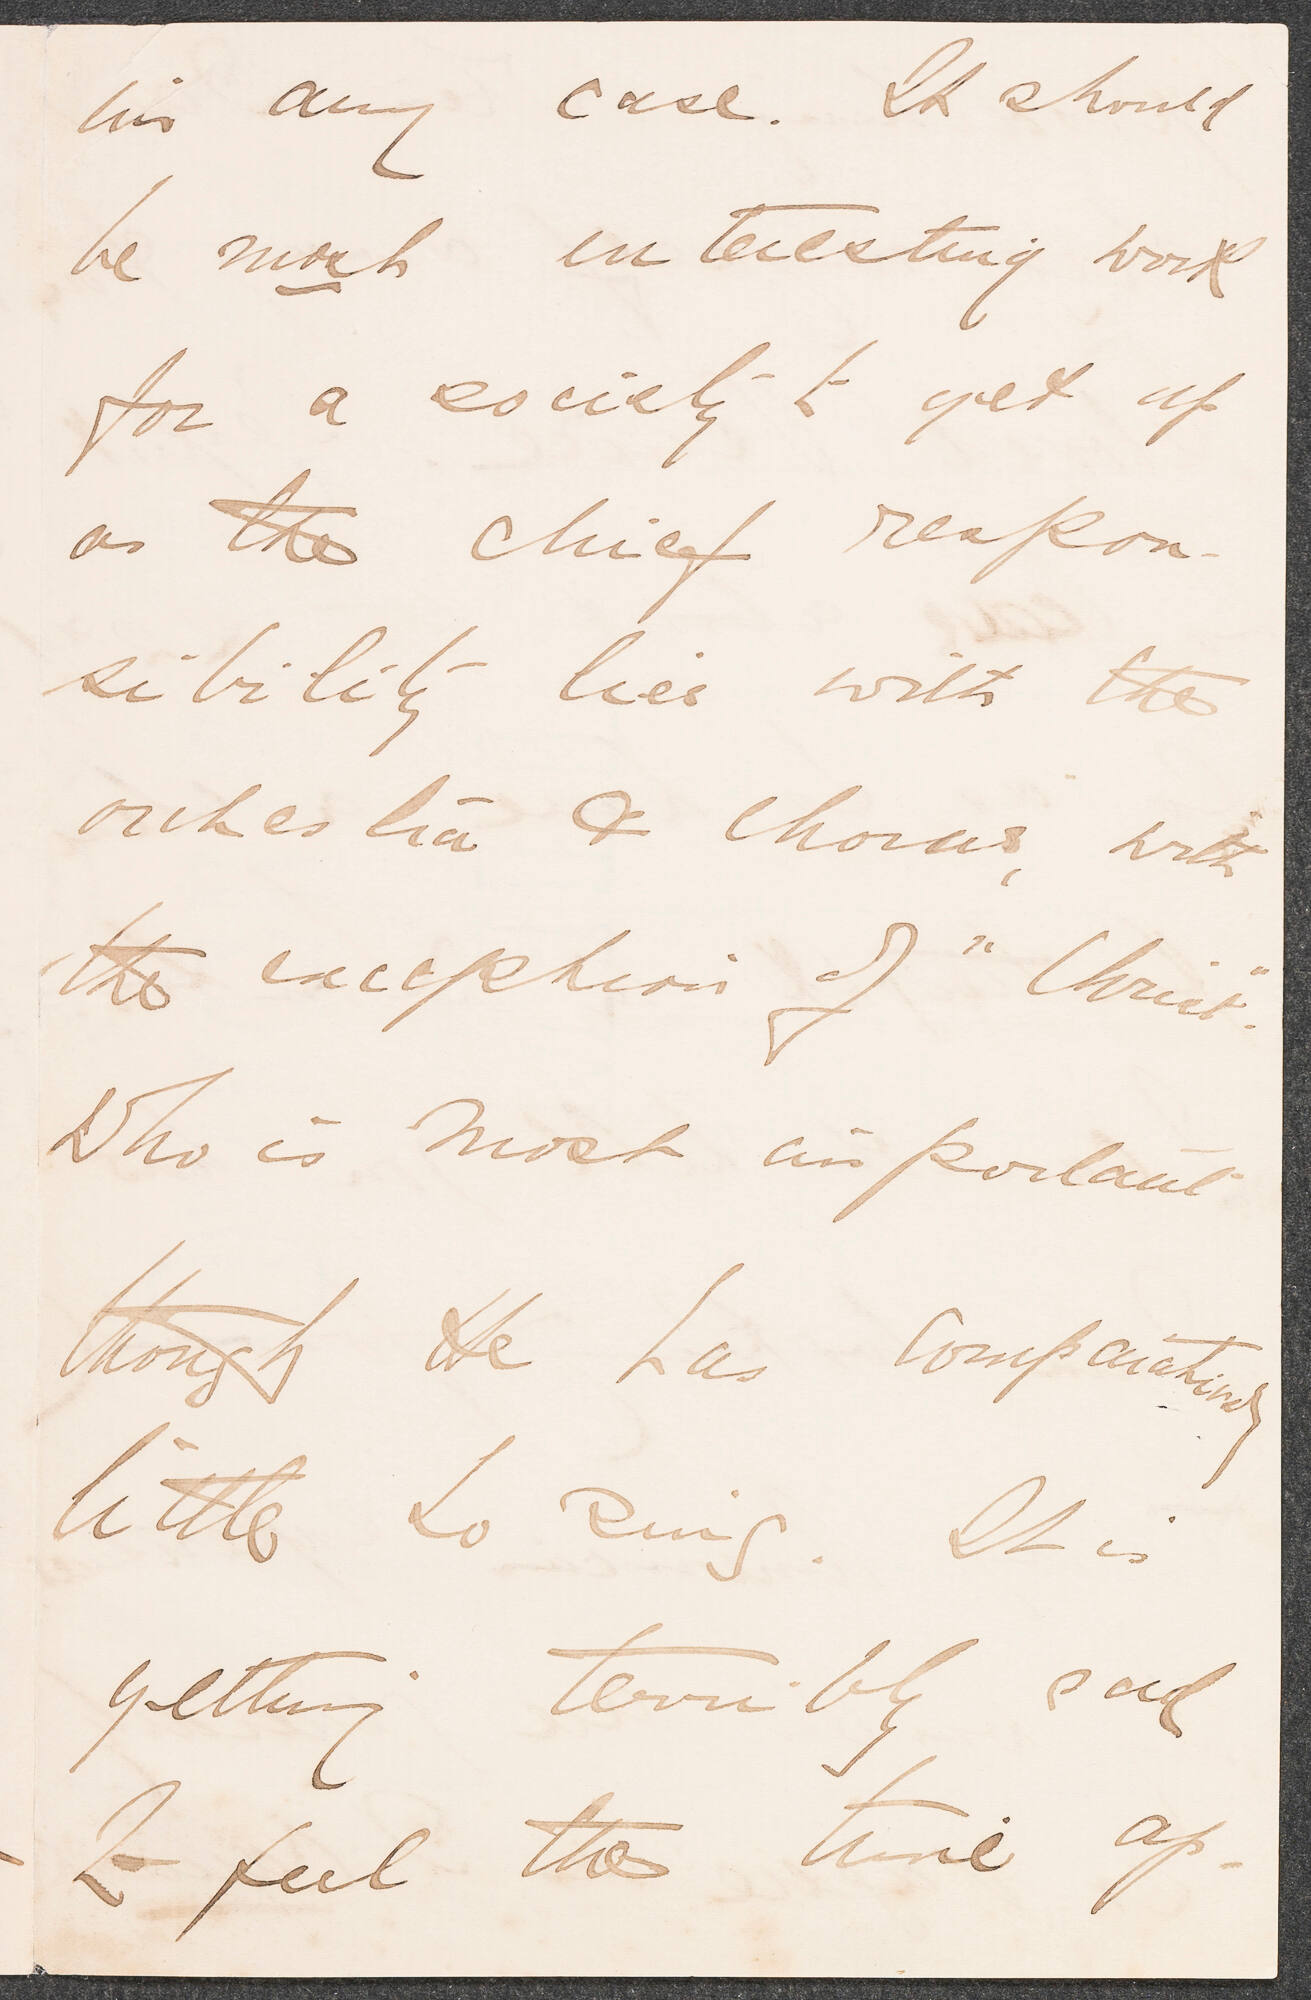 in any case. It should
be most interesting work
for a society to get up
as the chief respon-
sibility lies with the
orchestra & chorus, with
the exception of "Christ".
Who is most important
though He has comparatively
little to sing. It is
getting terribly sad
to feel the time ap-